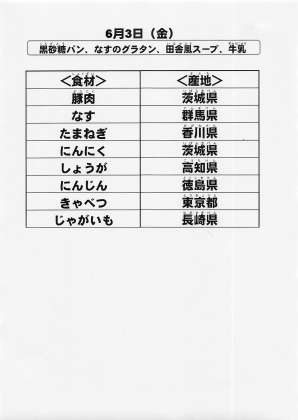 6月3日（金）
黒砂糖パン、なすのグラタン、田舎風スープ、牛乳
＜食材＞ ＜産地＞
豚肉 茨城県
なす 群馬県
たまねぎ 香川県
にんにく 茨城県
しょうが 高知県
にんじん 徳島県
きゃべつ 東京都
じゃがいも 長崎県